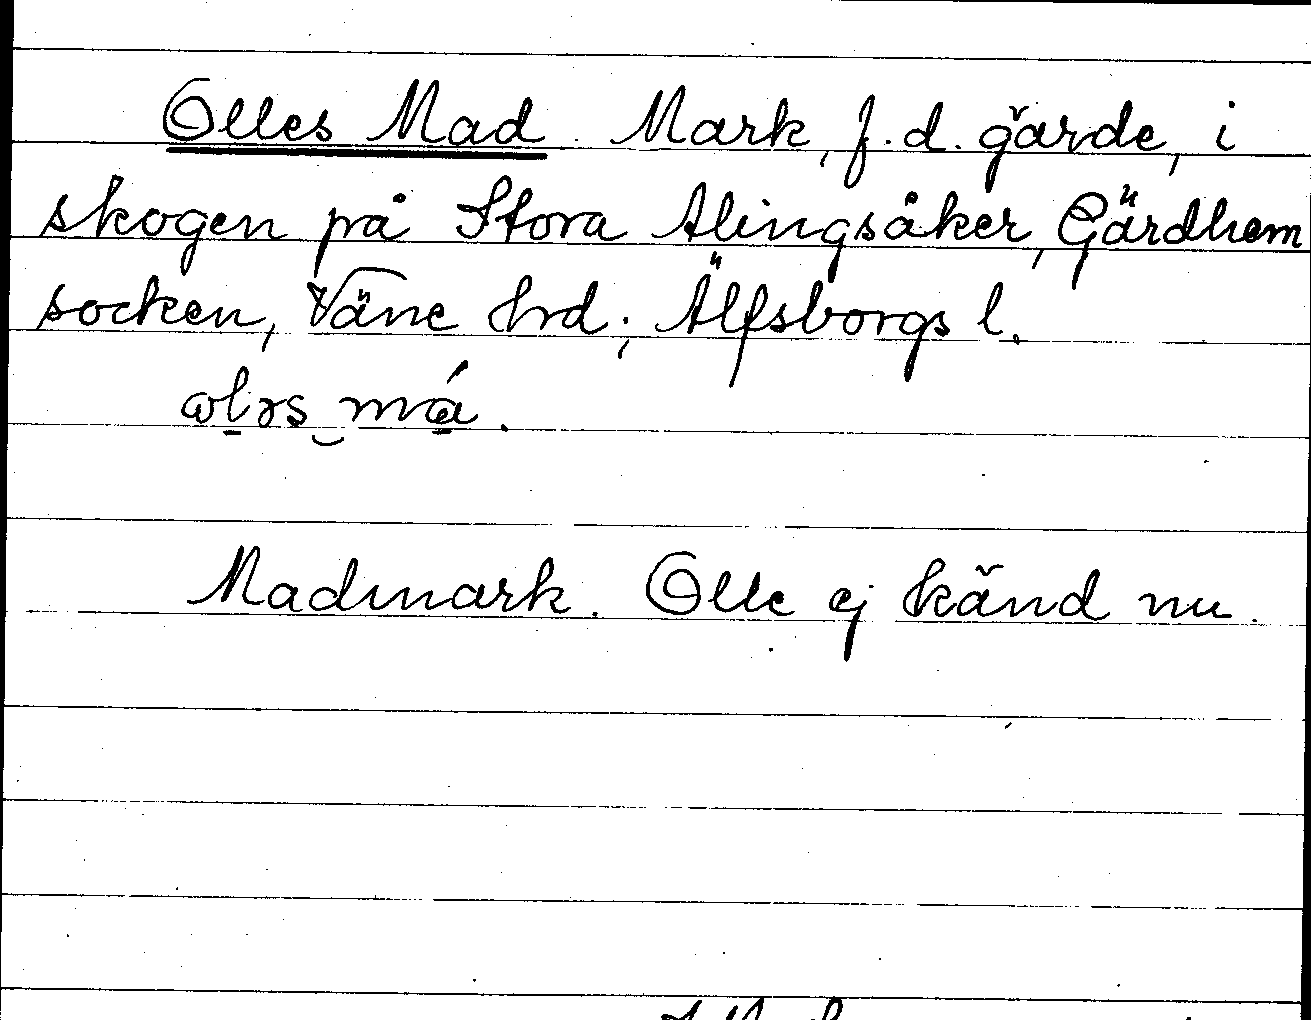 Olles Mad. Mark, f.d. gärde, i
skogen på Stora Alingsåker, Gärdhem
socken, Väne hrd; Älfsborgs l.
ɷl̲əs‿má̲.
Madmark. Olle ej känd nu.